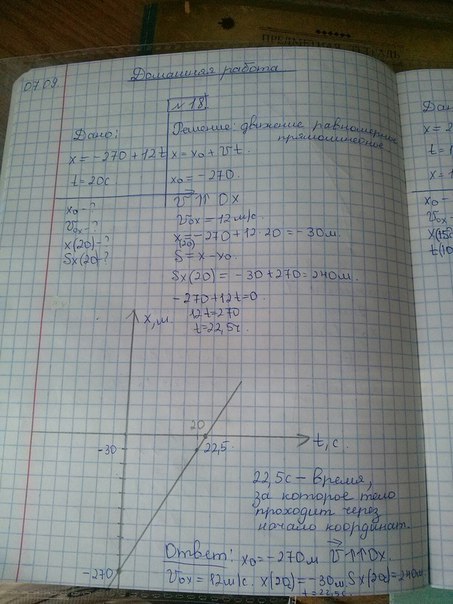 07.09.
Домашняя работа
№ 18
Дано:
x = -270 + 12t
t = 20с
x₀ - ?
v₀ₓ - ?
x(20) - ?
Sx(20) - ?
Решение: движение равномерное
прямолинейное
x = x₀ + vt.
x₀ = -270.
v ↑↑ Ox
v₀ₓ = 12 м/с.
x(20) = -270 + 12·20 = -30м.
S = x - x₀.
Sx(20) = -30 + 270 = 240м.
-270 + 12t = 0.
12t = 270
t = 22,5с.
x, м.
20
22,5
t, с.
-30
-270
22,5с - время,
за которое тело
проходит через
начало координат.
Ответ: x₀ = -270м v ↑↑ Ox.
v₀ₓ = 12м/с. x(20) = -30м. Sx(20) = 240м.
t = 22,5с.
Дано
x = 2
t = 1
x = 1
x₀ -
v₀ₓ
t(10